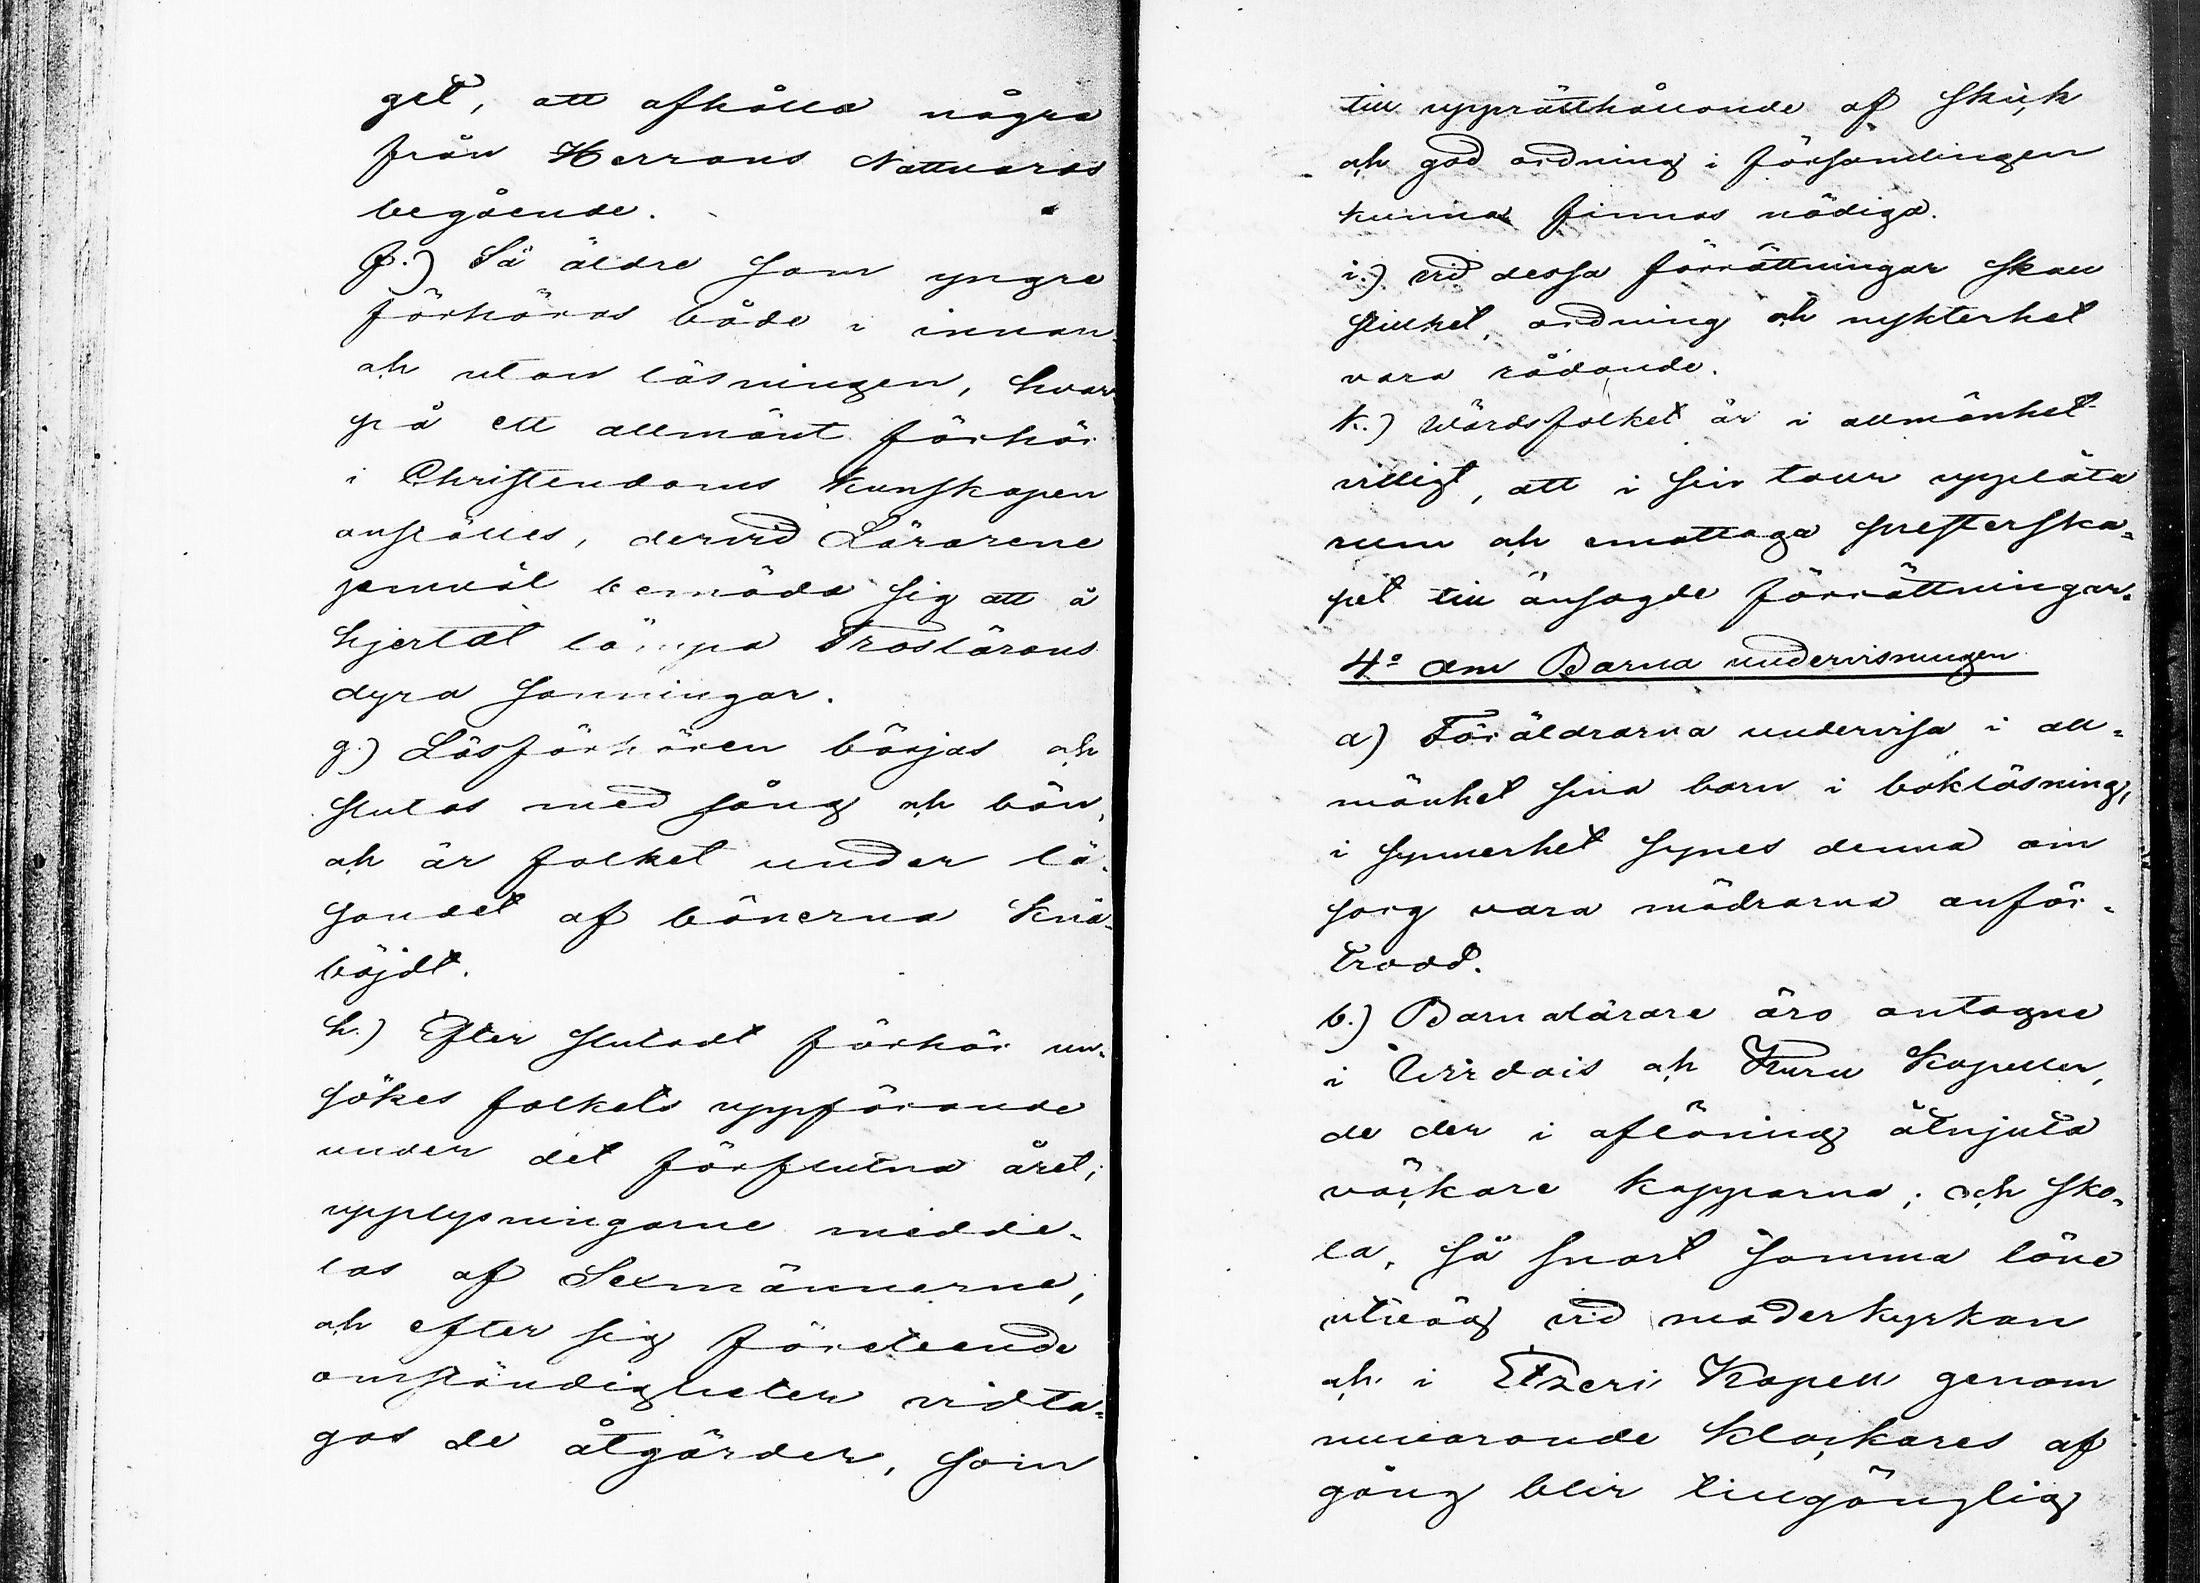 get, att afhålla några
från Herrans Nattvards
begående.
f.) Så äldre som yngre
förhöras både i innan-
och utan läsningen, hvar-
på ett allmänt förhör
i Christendoms kunskapen
anställes, dervid Lärarene
jemväl bemöda sig att å
hjertat lämpa Troslärans
dyra sanningar.
g.) Läsförhören börjas och
slutas med sång och bön,
och är folket under lä-
sandet af bönerna knä-
böjdt.
h.) Efter slutadt förhör un-
sökes folkets uppförande
under det förflutna året;
upplysningarne medde-
las af Sexmännerne,
och efter sig företeende
omständigheter vidta-
gas de åtgärder, som
till upprätthållande af skick
och god ordning i församlingen
kunna finnas nödiga.
i.) vid dessa förrättningar skall
stillhet, ordning och nykterhet
vara rådande.
k.) Wärdsfolket är i allmänhet
villigt, att i sin tour upplåta
rum och emottaga presterska-
pet till ansagde förrättningar.
4º Om Barna undervisningen
a) Föräldrarna undervisa i all-
mänhet sina barn i bokläsning,
i synnerhet synes denna om
sorg vara mödrarna anför-
trodd.
b.) Barnalärare äro antagne
i Wirdois och Kuru Kapeller,
de der i aflöning åtnjuta
väckare kapparna; och ska-
la, så snart samma löne
utväg vid moderkyrkan
och i Etzeri Kapell genom
nuvarande klockares af
gång blir tillgänglig